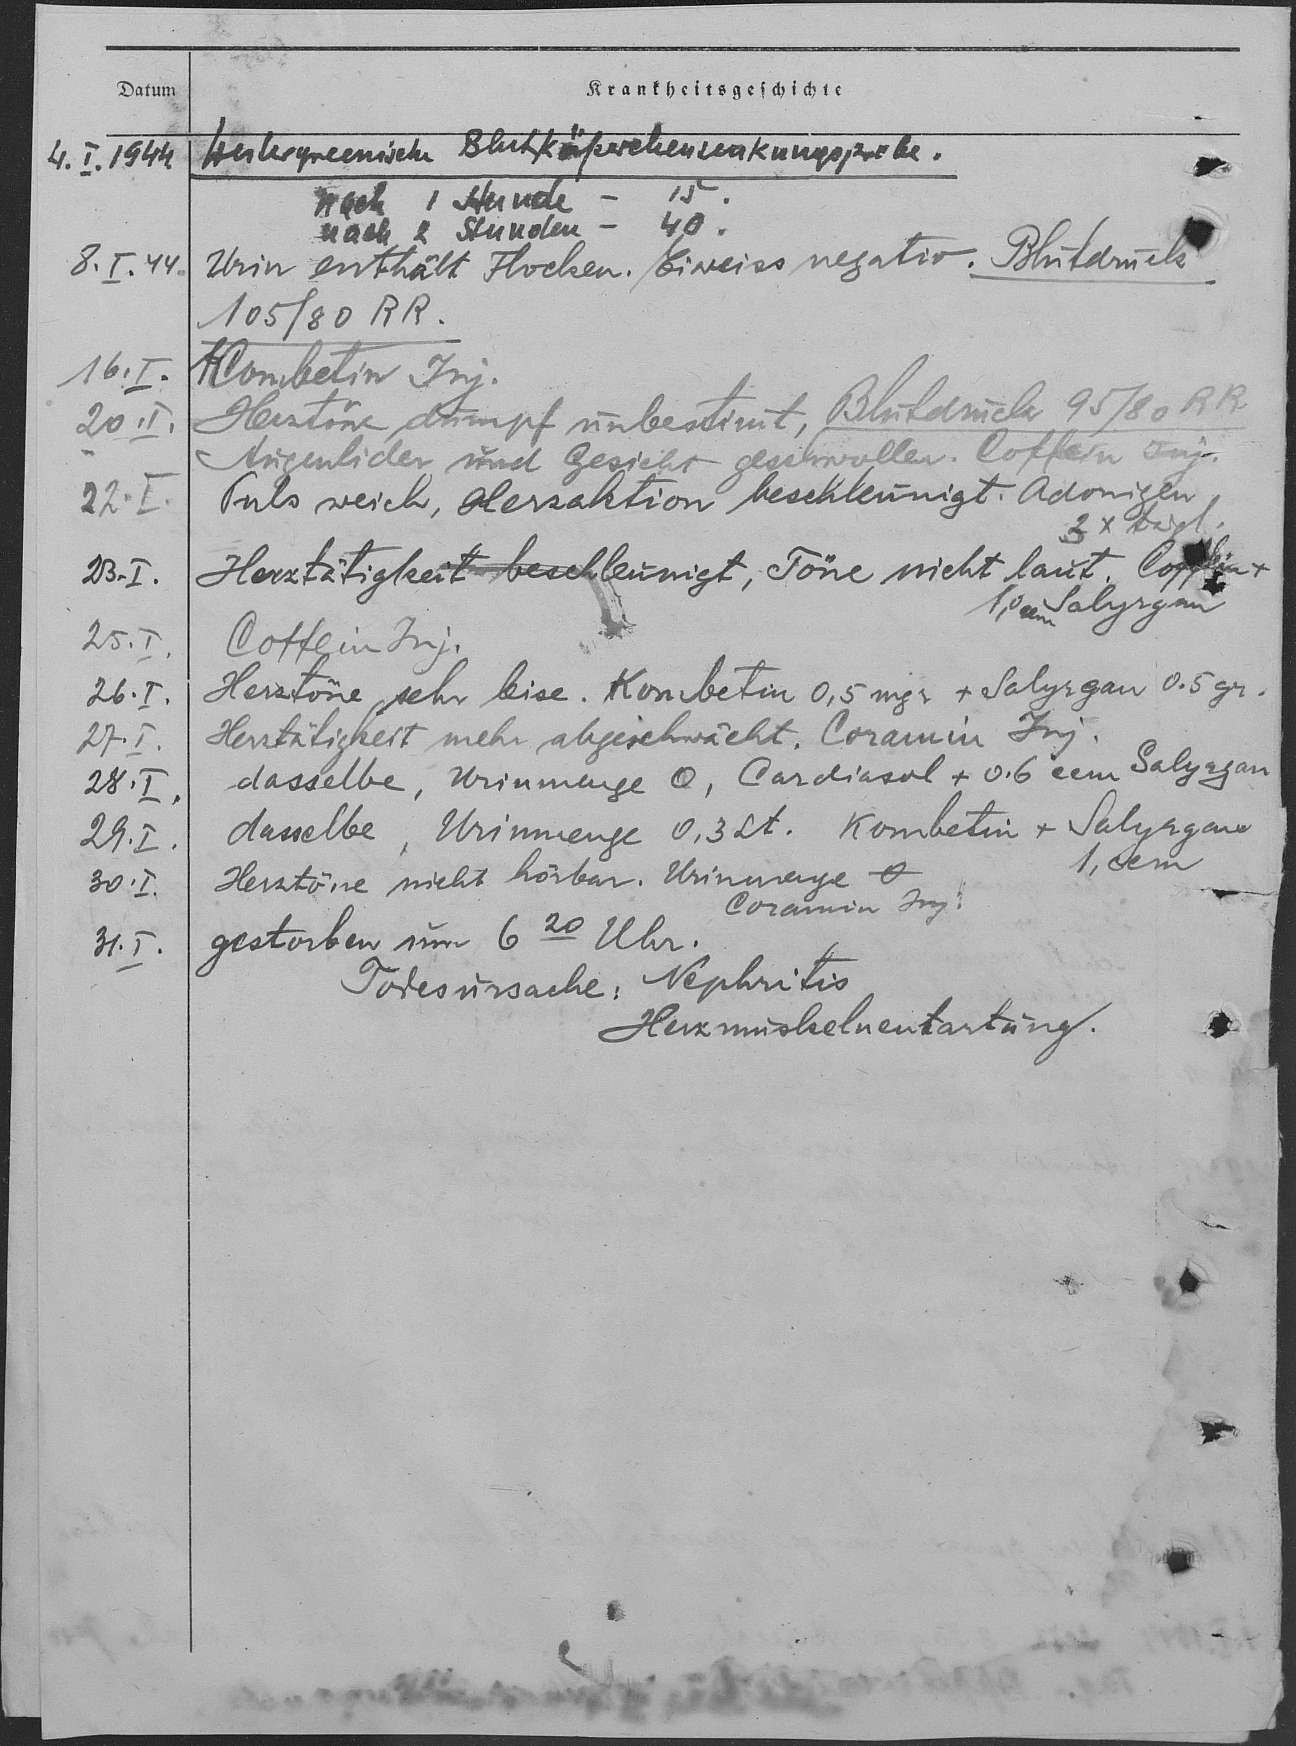 Datum Krankheitsgeschichte
4. I. 1944 Blutkörperchensenkungsprobe.
nach 1 Stunde – 15.
nach 2 Stunden – 40.
8. I. 44. Urin enthält Flocken. Eiweiss negativ. Blutdruck
105/80 RR.
16. I. Kombetin Inj.
20. I. Herztöne dumpf unbestimt, Blutdruck 95/80 RR
Augenlider und Gesicht geschwollen. Coffein Inj.
22. I. Puls weich, Herzaktion beschleunigt. Adonigen
2 x tägl.
23. I. Herztätigkeit beschleunigt, Töne nicht laut. Coffein +
1,0 ccm Salyrgan
25. I. Coffein Inj.
26. I. Herztöne sehr leise. Kombetin 0,5 mgr + Salyrgan 0.5 gr.
27. I. Herztätigkeit mehr abgeschwächt. Coramin Inj.
28. I. dasselbe, Urinmenge 0, Cardiasol + 0.6 ccm Salyrgan
29. I. dasselbe, Urinmenge 0,3 Lt. Kombetin + Salyrgan
1, ccm
30. I. Herztöne nicht hörbar. Urinmenge 0
Coramin Inj.
31. I. gestorben um 6 20 Uhr.
Todesursache: Nephritis
Herzmuskelnentartung.